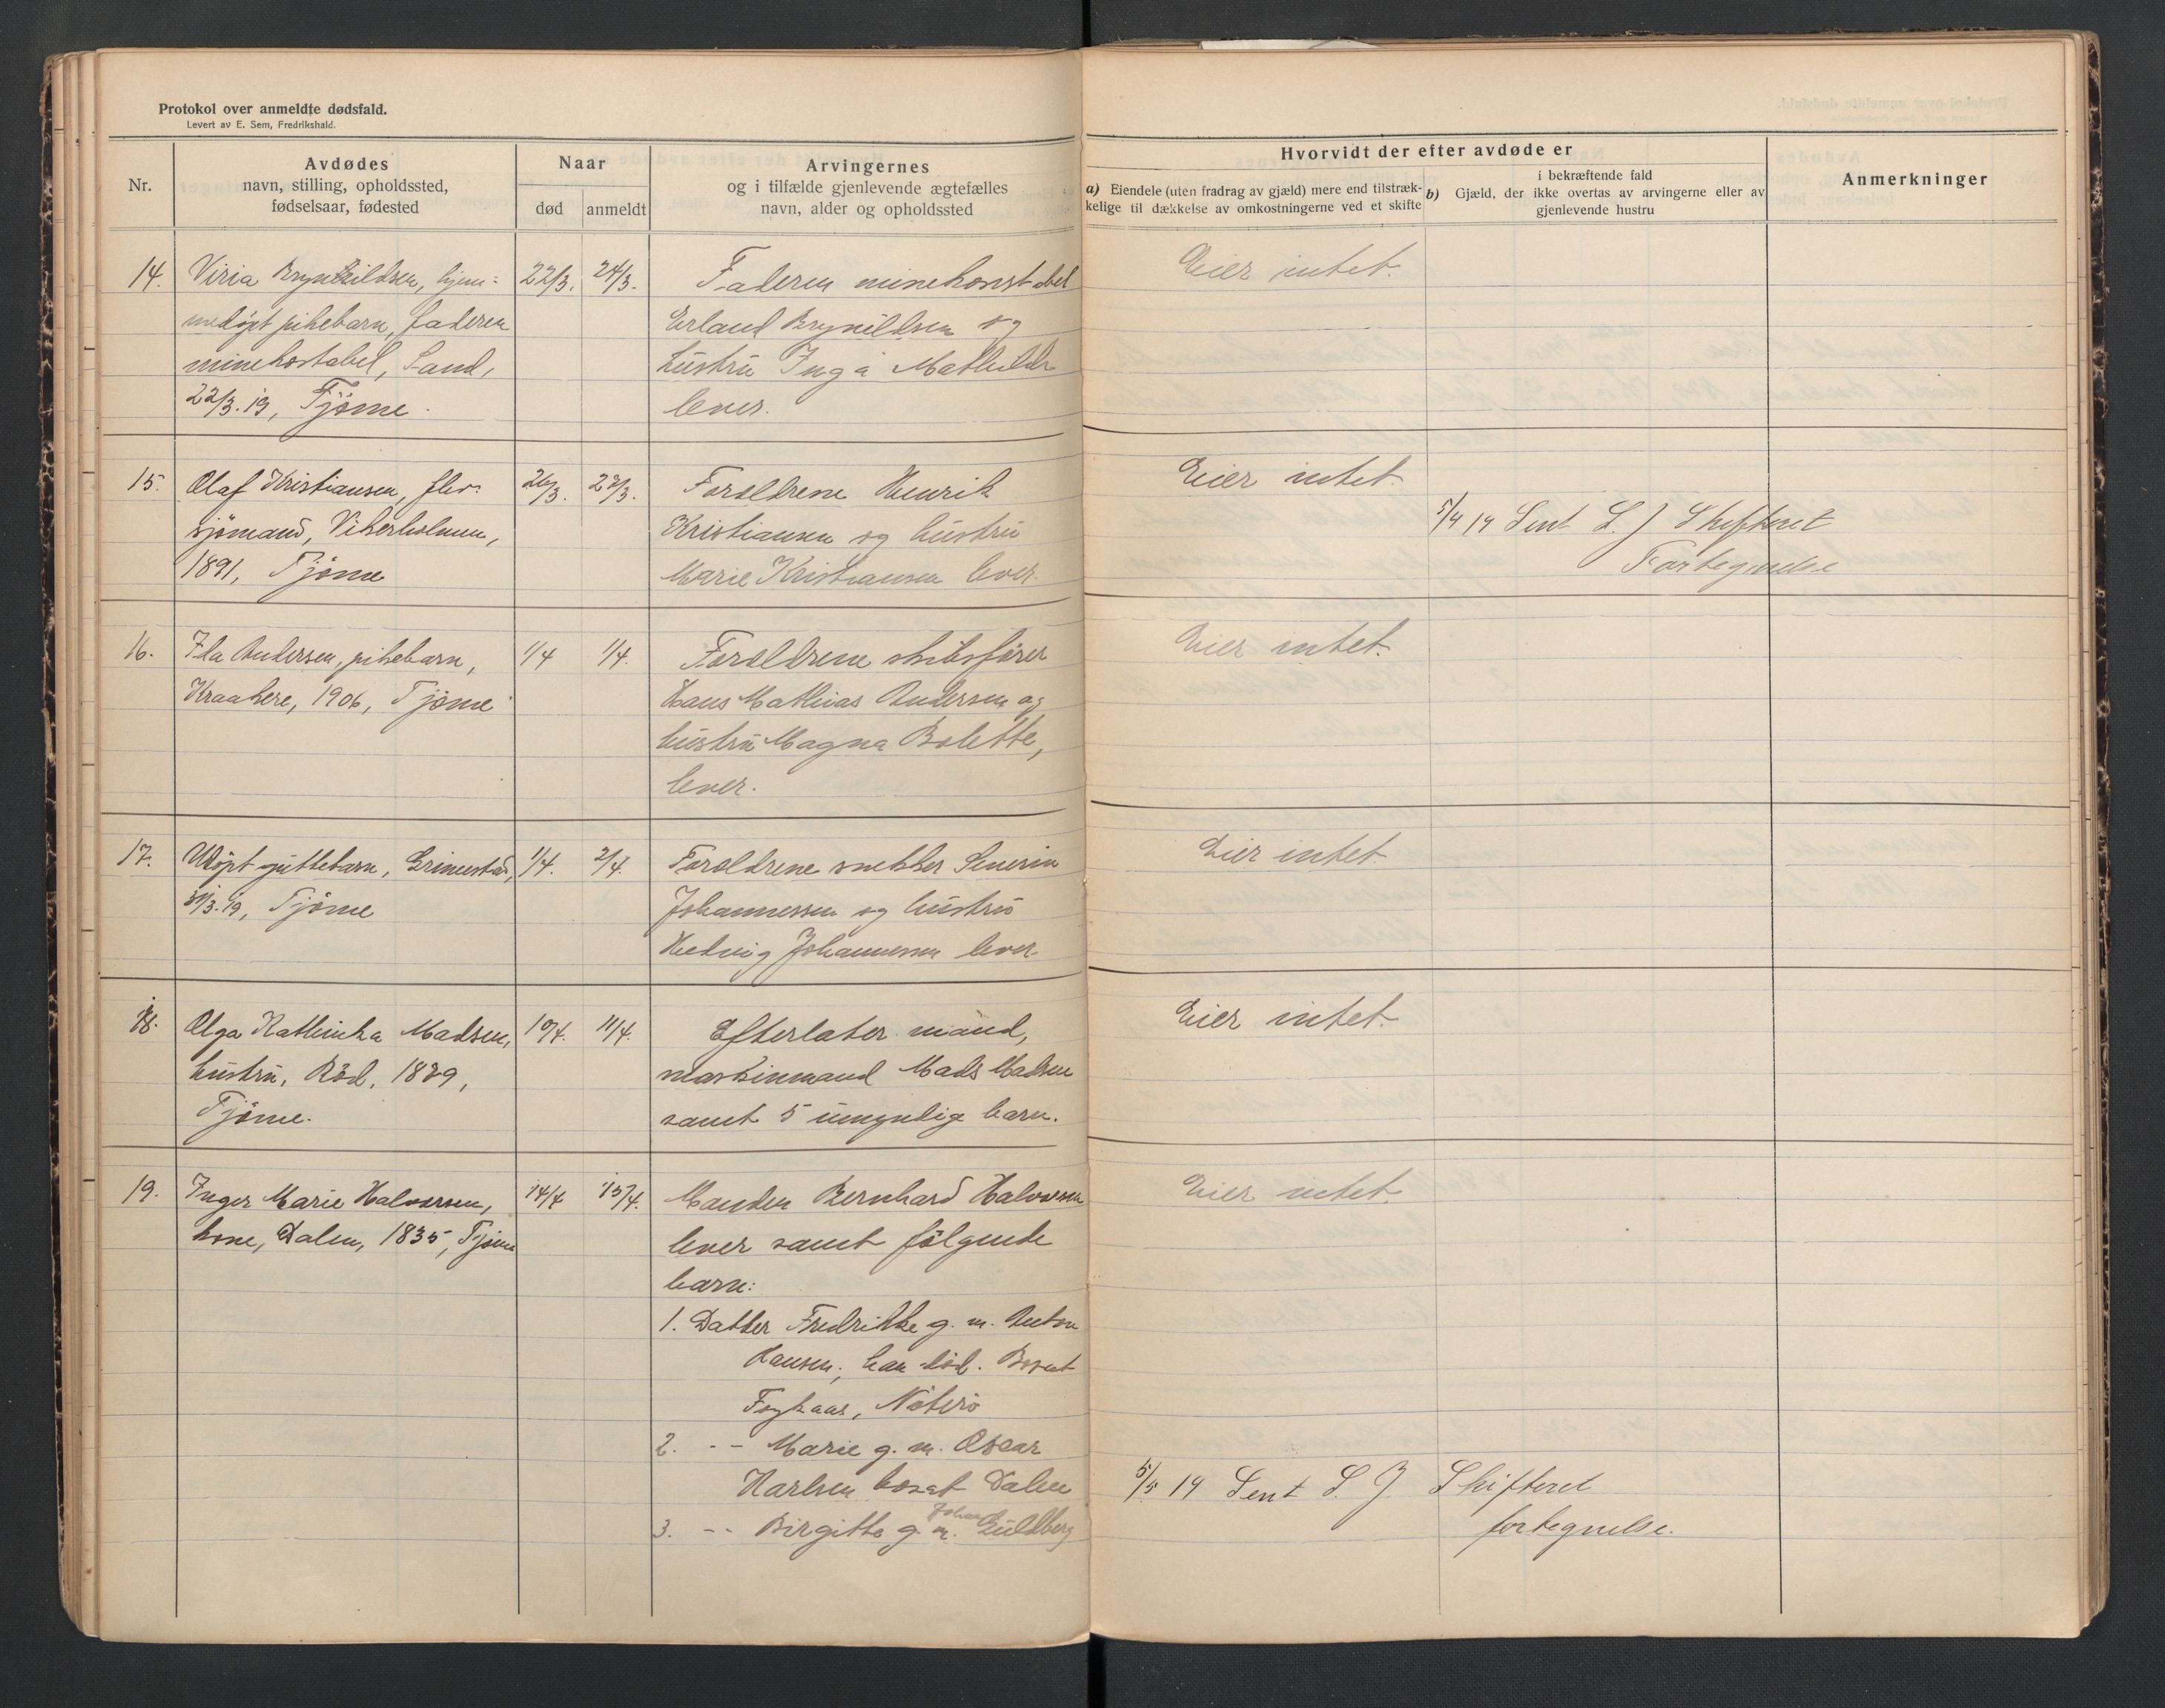 Protokol over anmeldte dødsfald.
Levert av E. Sem, Fredrikshald.
Nr.
Avdødes
navn, stilling, opholdssted,
fødselsaar, fødested
Naar
død
anmeldt
Arvingernes
og i tilfælde gjenlevende ægtefælles
navn, alder og opholdssted
Hvorvidt der efter avdøde er
a) Eiendele (uten fradrag av gjæld) mere end tilstræk-
kelige til dækkelse av omkostningerne ved et skifte
i bekræftende fald
b) Gjæld, der ikke overtas av arvingerne eller av
gjenlevende hustru
Anmerkninger
14. Viria Brynhildsen, hjem=
medøpt pikebarn, faderen
minekostabel, Sand,
22/3.19, Tjøme.
22/3. 24/3.
Faderen minekonstabel
Erland Brynildsen og
hustru Inga Mathilde
lever.
Eier intet.
15. Olaf Kristiansen,
sjømand, Vikerholmen,
1891, Tjøme
26/3.
Forældrene Henrik
Kristiansen og hustru
Marie Kristiansen lever.
Eier intet.
5/4 19 Sent S. J Skifteret
Fortegnelse
16. Ida Andersen, pikebarn,
Kraakere, 1906, Tjøme
1/4 1/4.
Forældrene skibsfører
Hans Mathias Andersen og
hustru Magna Bolette,
lever.
Eier intet.
17. Udøpt guttebarn, Grimestad,
31/3.19, Tjøme
1/4. 2/4.
Forældrene snekker Severin
Johannessen og hustru
Hedvig Johannessen lever.
Eier intet.
18. Olga Kathinka Madsen,
hustru, Rød, 1889,
Tjøme.
10/4. 11/4.
Efterlater mand,
maskinmand Mads Madsen
samt 5 umynlige barn.
Eier intet.
19. Inger Marie Halvorsen,
kone, Dalen, 1835, Tjøme
14/4 15/4.
Manden Bernhard Halvorsen
lever samt følgende
barn:
1. Datter Fredrikke g. m. Anton
Hansen, han død. Bosat
Føynkaas, Nøterø
2. -- Marie g. m. Oscar
Karlsen bosat Dalen
3. -- Birgitte g. m. Johan Guldberg
Eier intet.
5/5 19 Sent S. J Skifteret
fortegnelse.